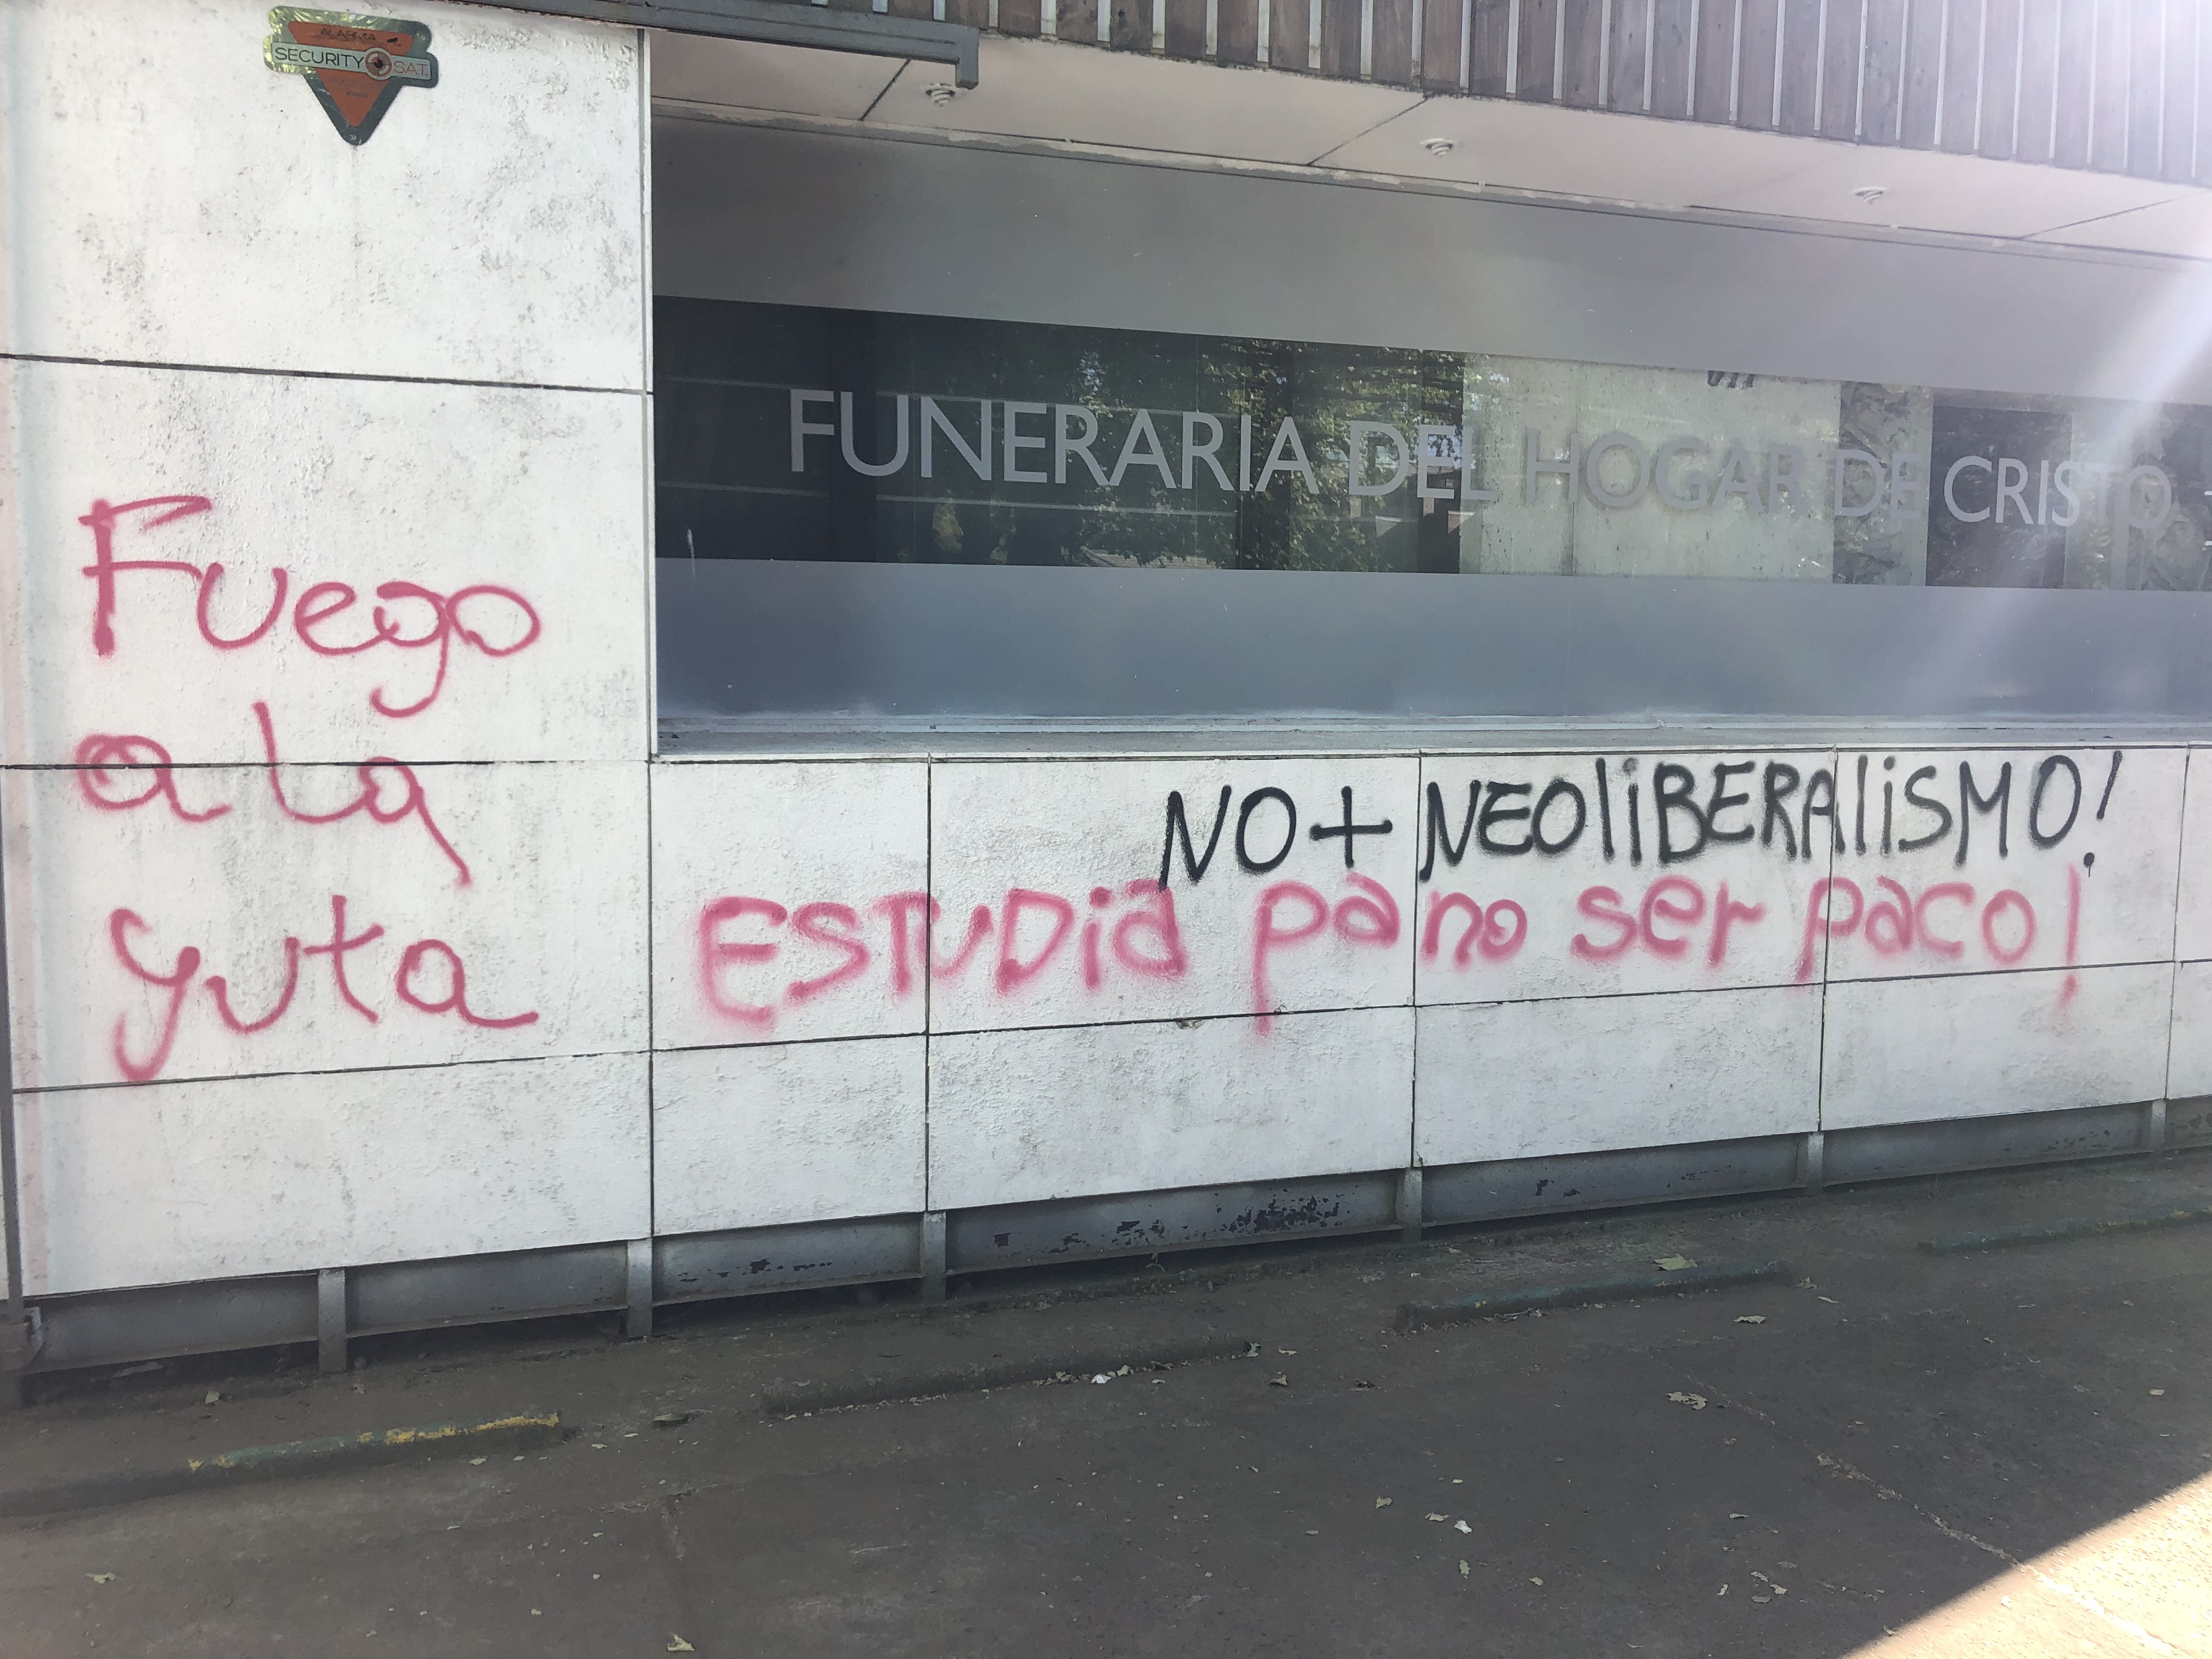 ALARMA
SECURITY SAT.
FUNERARIA DEL HOGAR DE CRISTO
Fuego
a la
yuta
NO + NEOliBERAliSMO!
ESTUDia pa no ser paco!